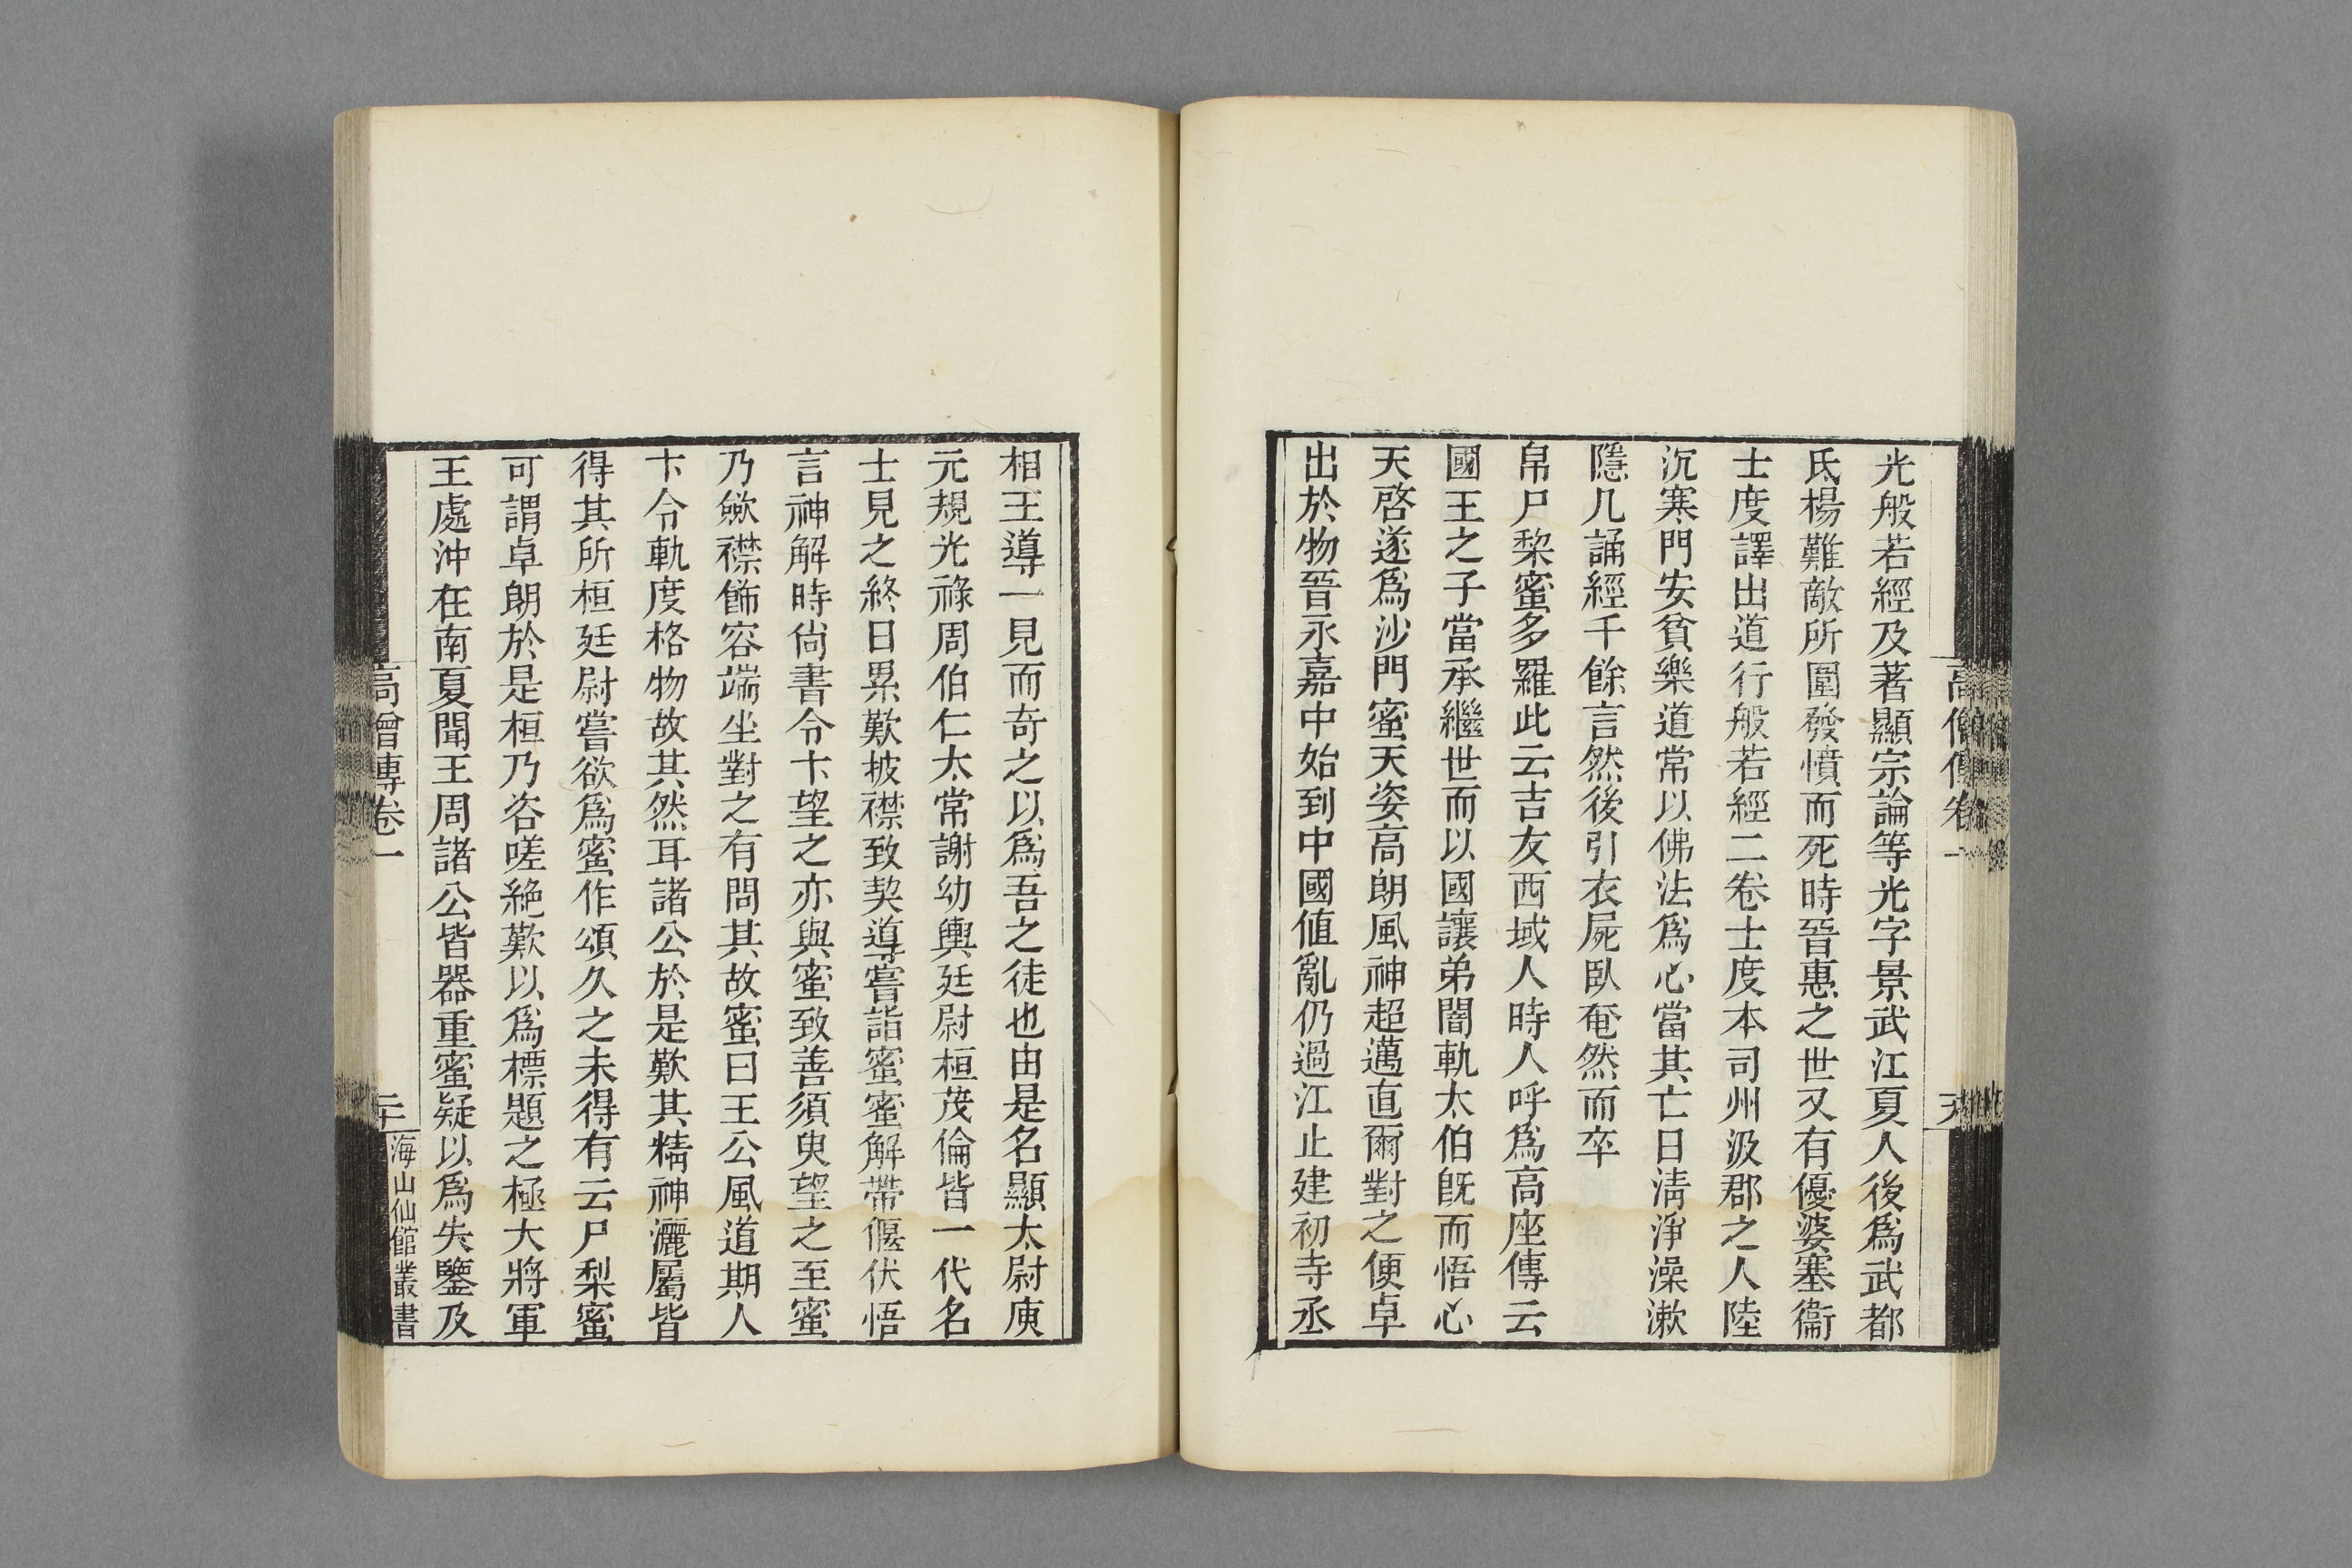 光般若經及著顯宗論等光字景武江夏人後爲武都
氐楊難敵所圍發憤而死時晉惠之世又有優婆塞衞
士度譯出道行般若經二卷士度本司州汲郡之人陸
沉寒門安貧樂道常以佛法爲心當其亡日淸淨澡漱
隱几誦經千餘言然後引衣屍臥奄然而卒
帛尸黎蜜多羅此云吉友西域人時人呼爲高座傳云
國王之子當承繼世而以國讓弟闇軌太伯旣而悟心
天啓遂爲沙門蜜天姿高朗風神超邁直爾對之便卓
出於物晉永嘉中始到中國値亂仍過江止建初寺丞
高僧傳卷一
相王導一見而奇之以爲吾之徒也由是名顯太尉庾
元規光祿周伯仁太常謝幼輿廷尉桓茂倫皆一代名
士見之終日累歎披襟致契導嘗詣蜜蜜解帶偃伏悟
言神解時尙書令卞望之亦與蜜致善須臾望之至蜜
乃歛襟飾容端坐對之有問其故蜜曰王公風道期人
卞令軌度格物故其然耳諸公於是歎其精神灑屬皆
得其所桓廷尉嘗欲爲蜜作頌久之未得有云尸梨蜜
可謂卓朗於是桓乃咨嗟絶歎以爲標題之極大將軍
王處沖在南夏聞王周諸公皆器重蜜疑以爲失鑒及
高僧傳卷一
海山仙館叢書